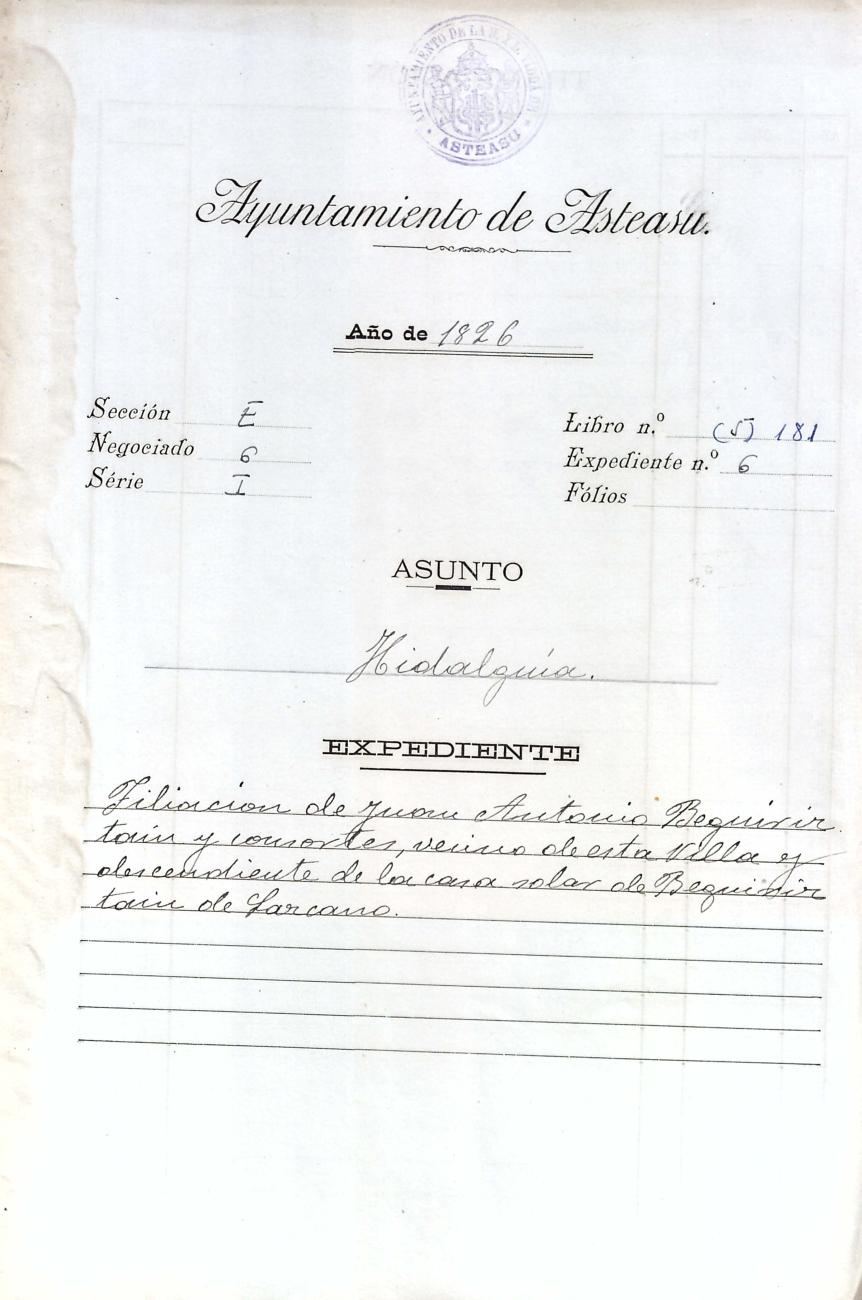 AYUNTAMIENTO DE LA
ASTEASU
Ayuntamiento de Asteasu.
Año de 1826
Sección E
Negociado 6
Série I
Libro n.º (5) 181
Expediente n.º 6
Fólios
ASUNTO
Hidalguía.
EXPEDIENTE
Filiacion de Juan Antonio Beguirir
tain y consortes, vecino de esta Villa y
descendiente de la casa solar de Beguirir
tain de Larcano.